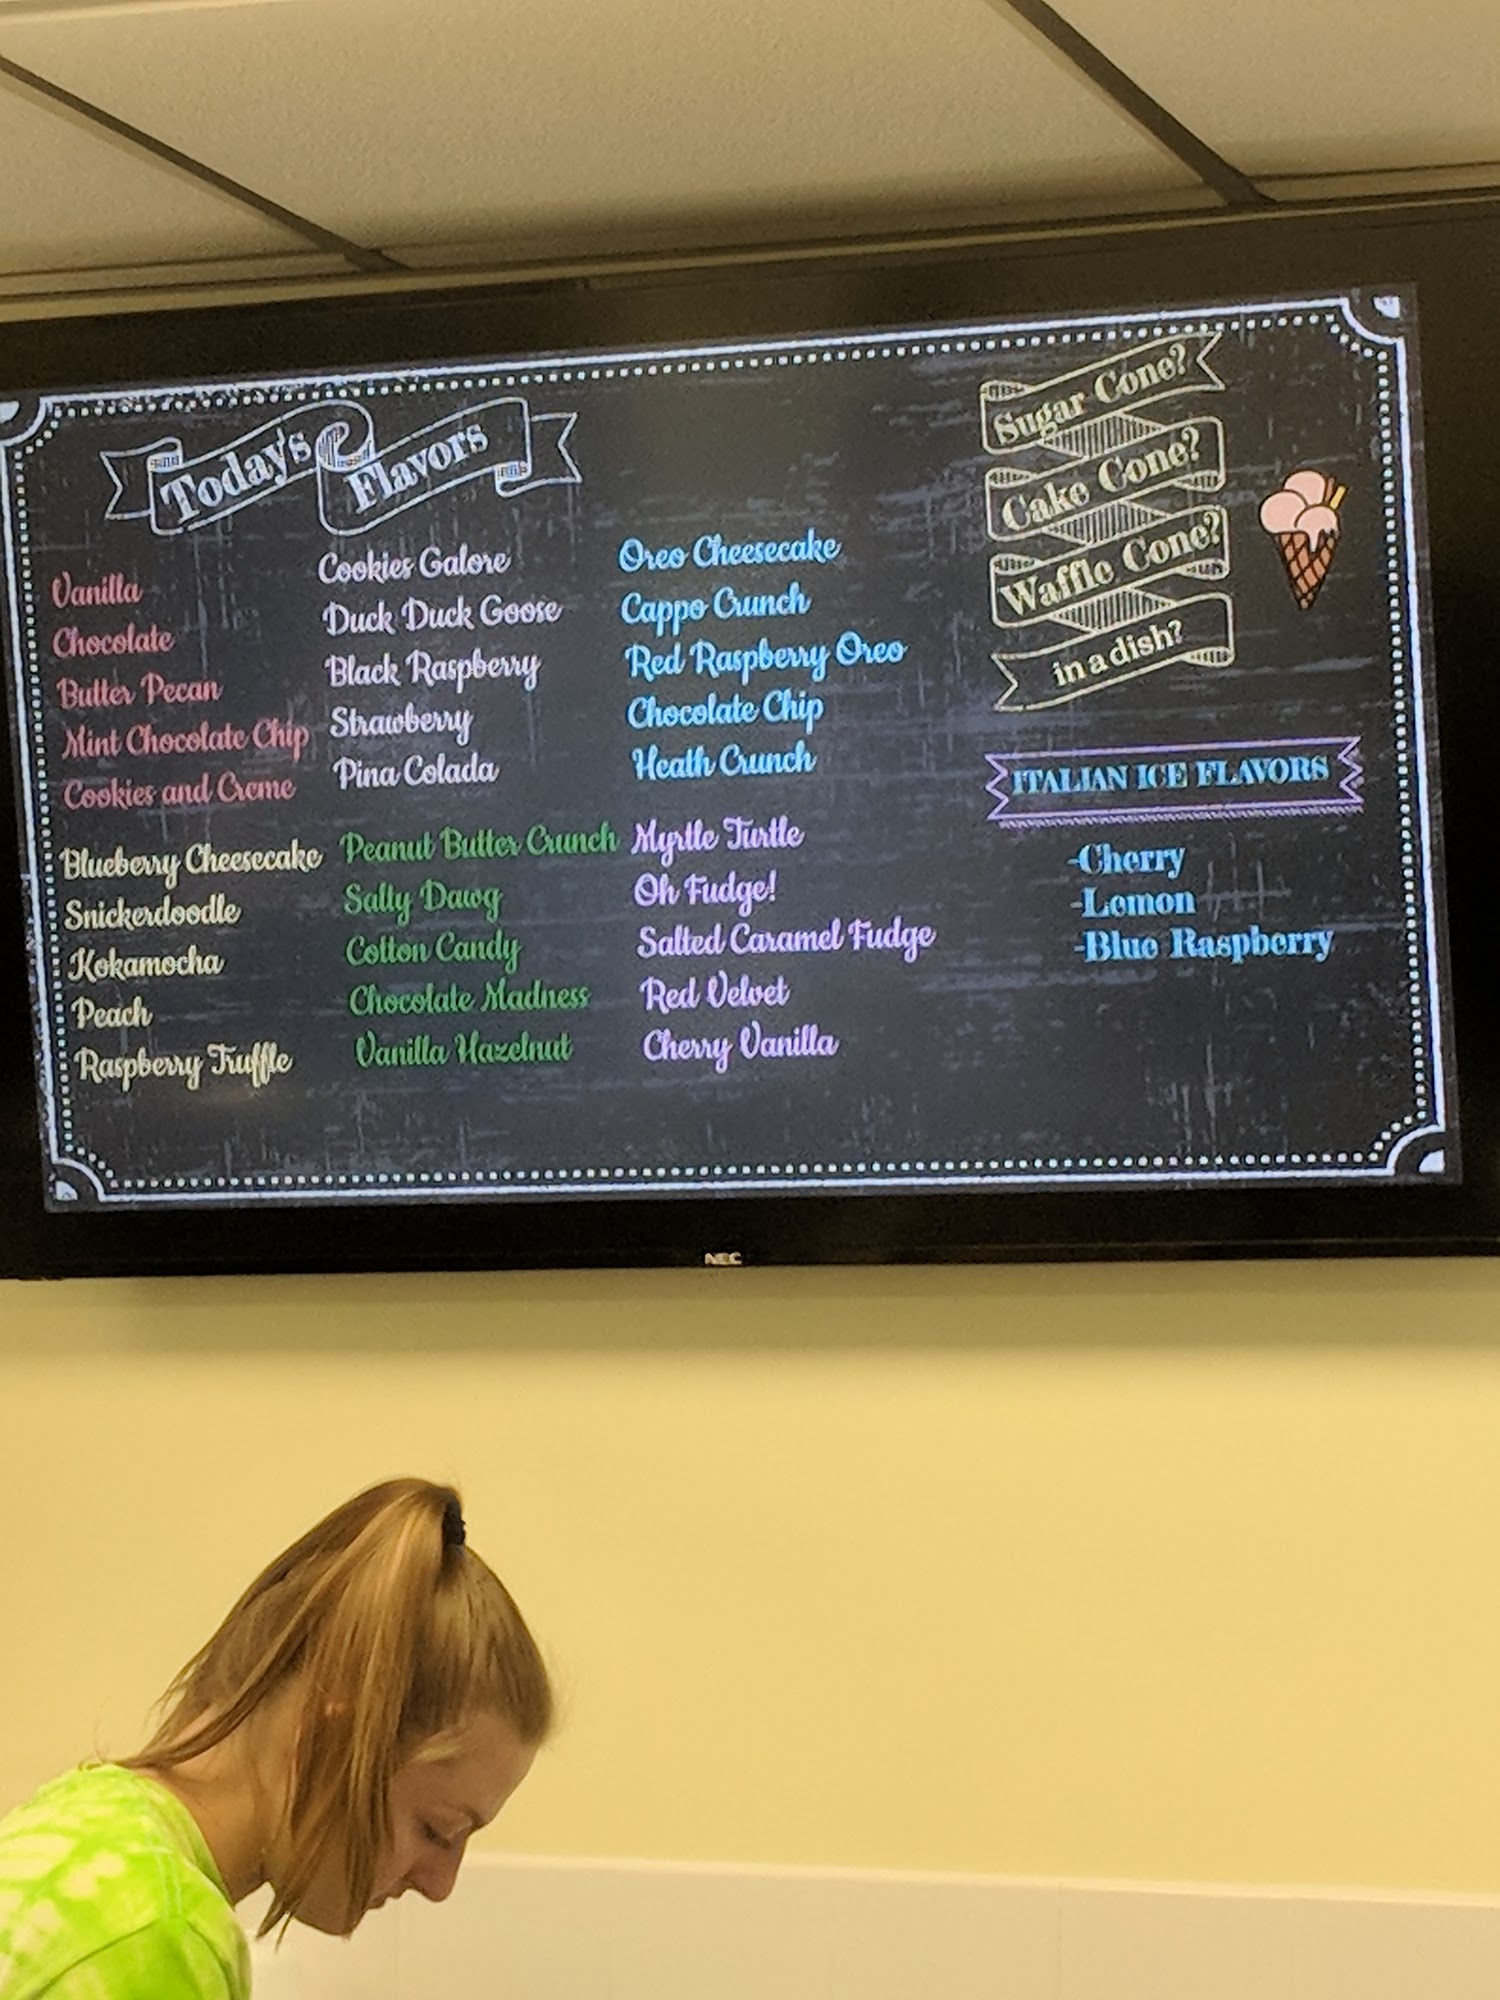 Today's Flavors
Vanilla
Chocolate
Butter Pecan
Mint Chocolate Chip
Cookies and Creme
Cookies Galore
Duck Duck Goose
Black Raspberry
Strawberry
Pina Colada
Oreo Cheesecake
Cappo Crunch
Red Raspberry Oreo
Chocolate Chip
Heath Crunch
Blueberry Cheesecake
Snickerdoodle
Kokamocha
Peach
Raspberry Truffle
Peanut Butter Crunch
Salty Dawg
Cotton Candy
Chocolate Madness
Vanilla Hazelnut
Myrtle Turtle
Oh Fudge!
Salted Caramel Fudge
Red Velvet
Cherry Vanilla
Sugar Cone?
Cake Cone?
Waffle Cone?
in a dish?
ITALIAN ICE FLAVORS
-Cherry
-Lemon
-Blue Raspberry
NEC